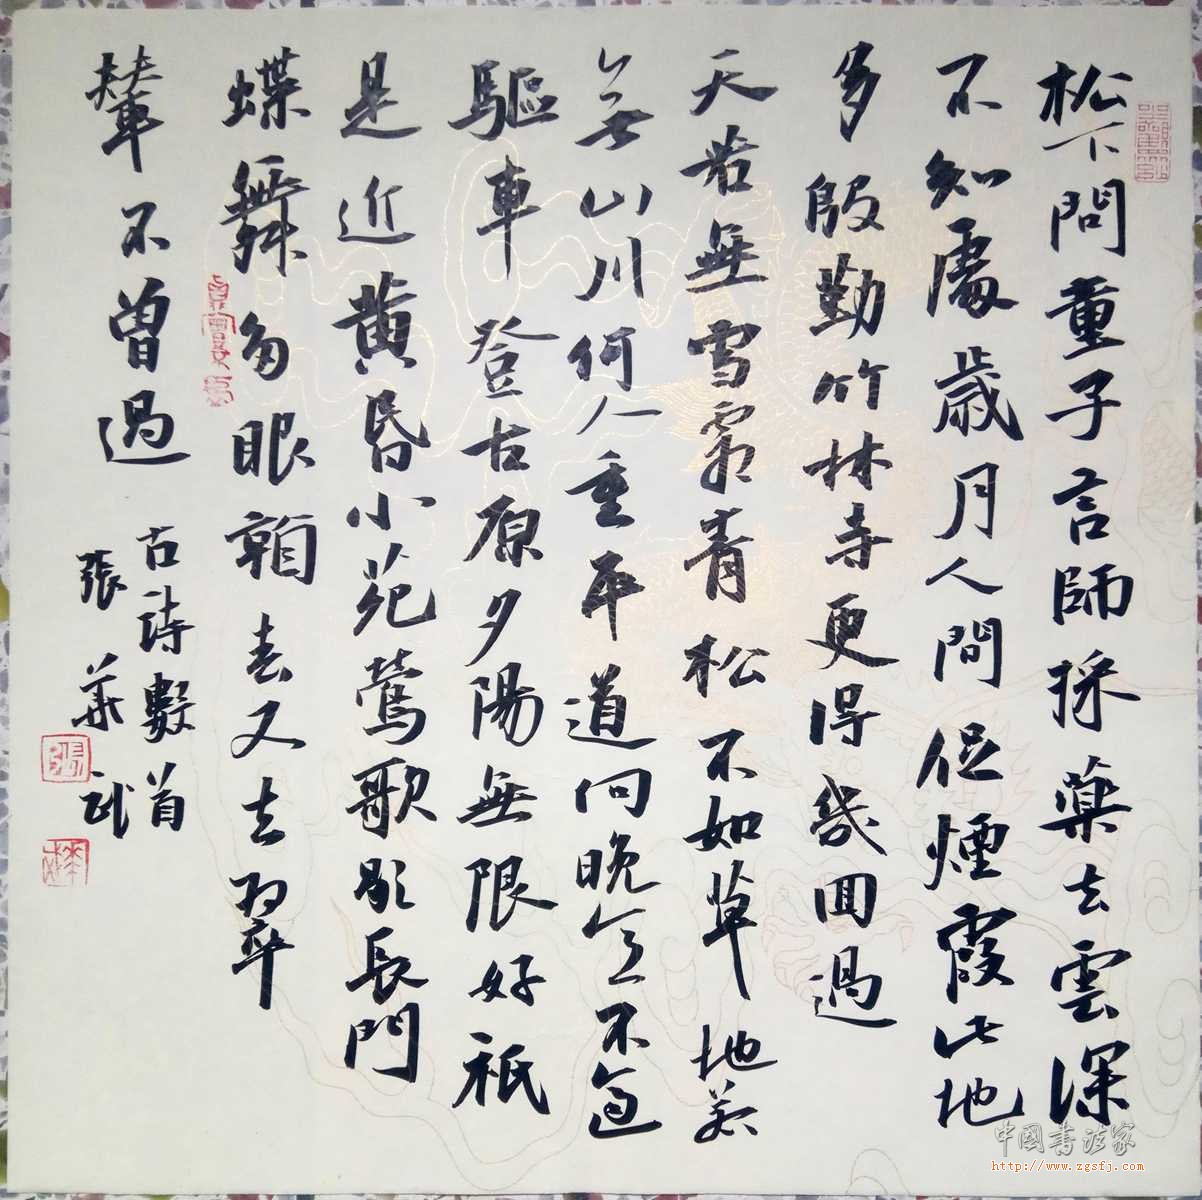 松下問童子言師採藥去雲深
不知處歲月人間促煙霞此地
多殷勤竹林寺更得幾回過
天若無雪霜青松不如草地若
無山川何人重平道向晚意不適
驅車登古原夕陽無限好祇
是近黄昏小苑鶯歌歇長門
蝶舞多眼看春又去翠
輦不曾過
古詩數首
張華武
中國書法家
http://www.zgsfj.com